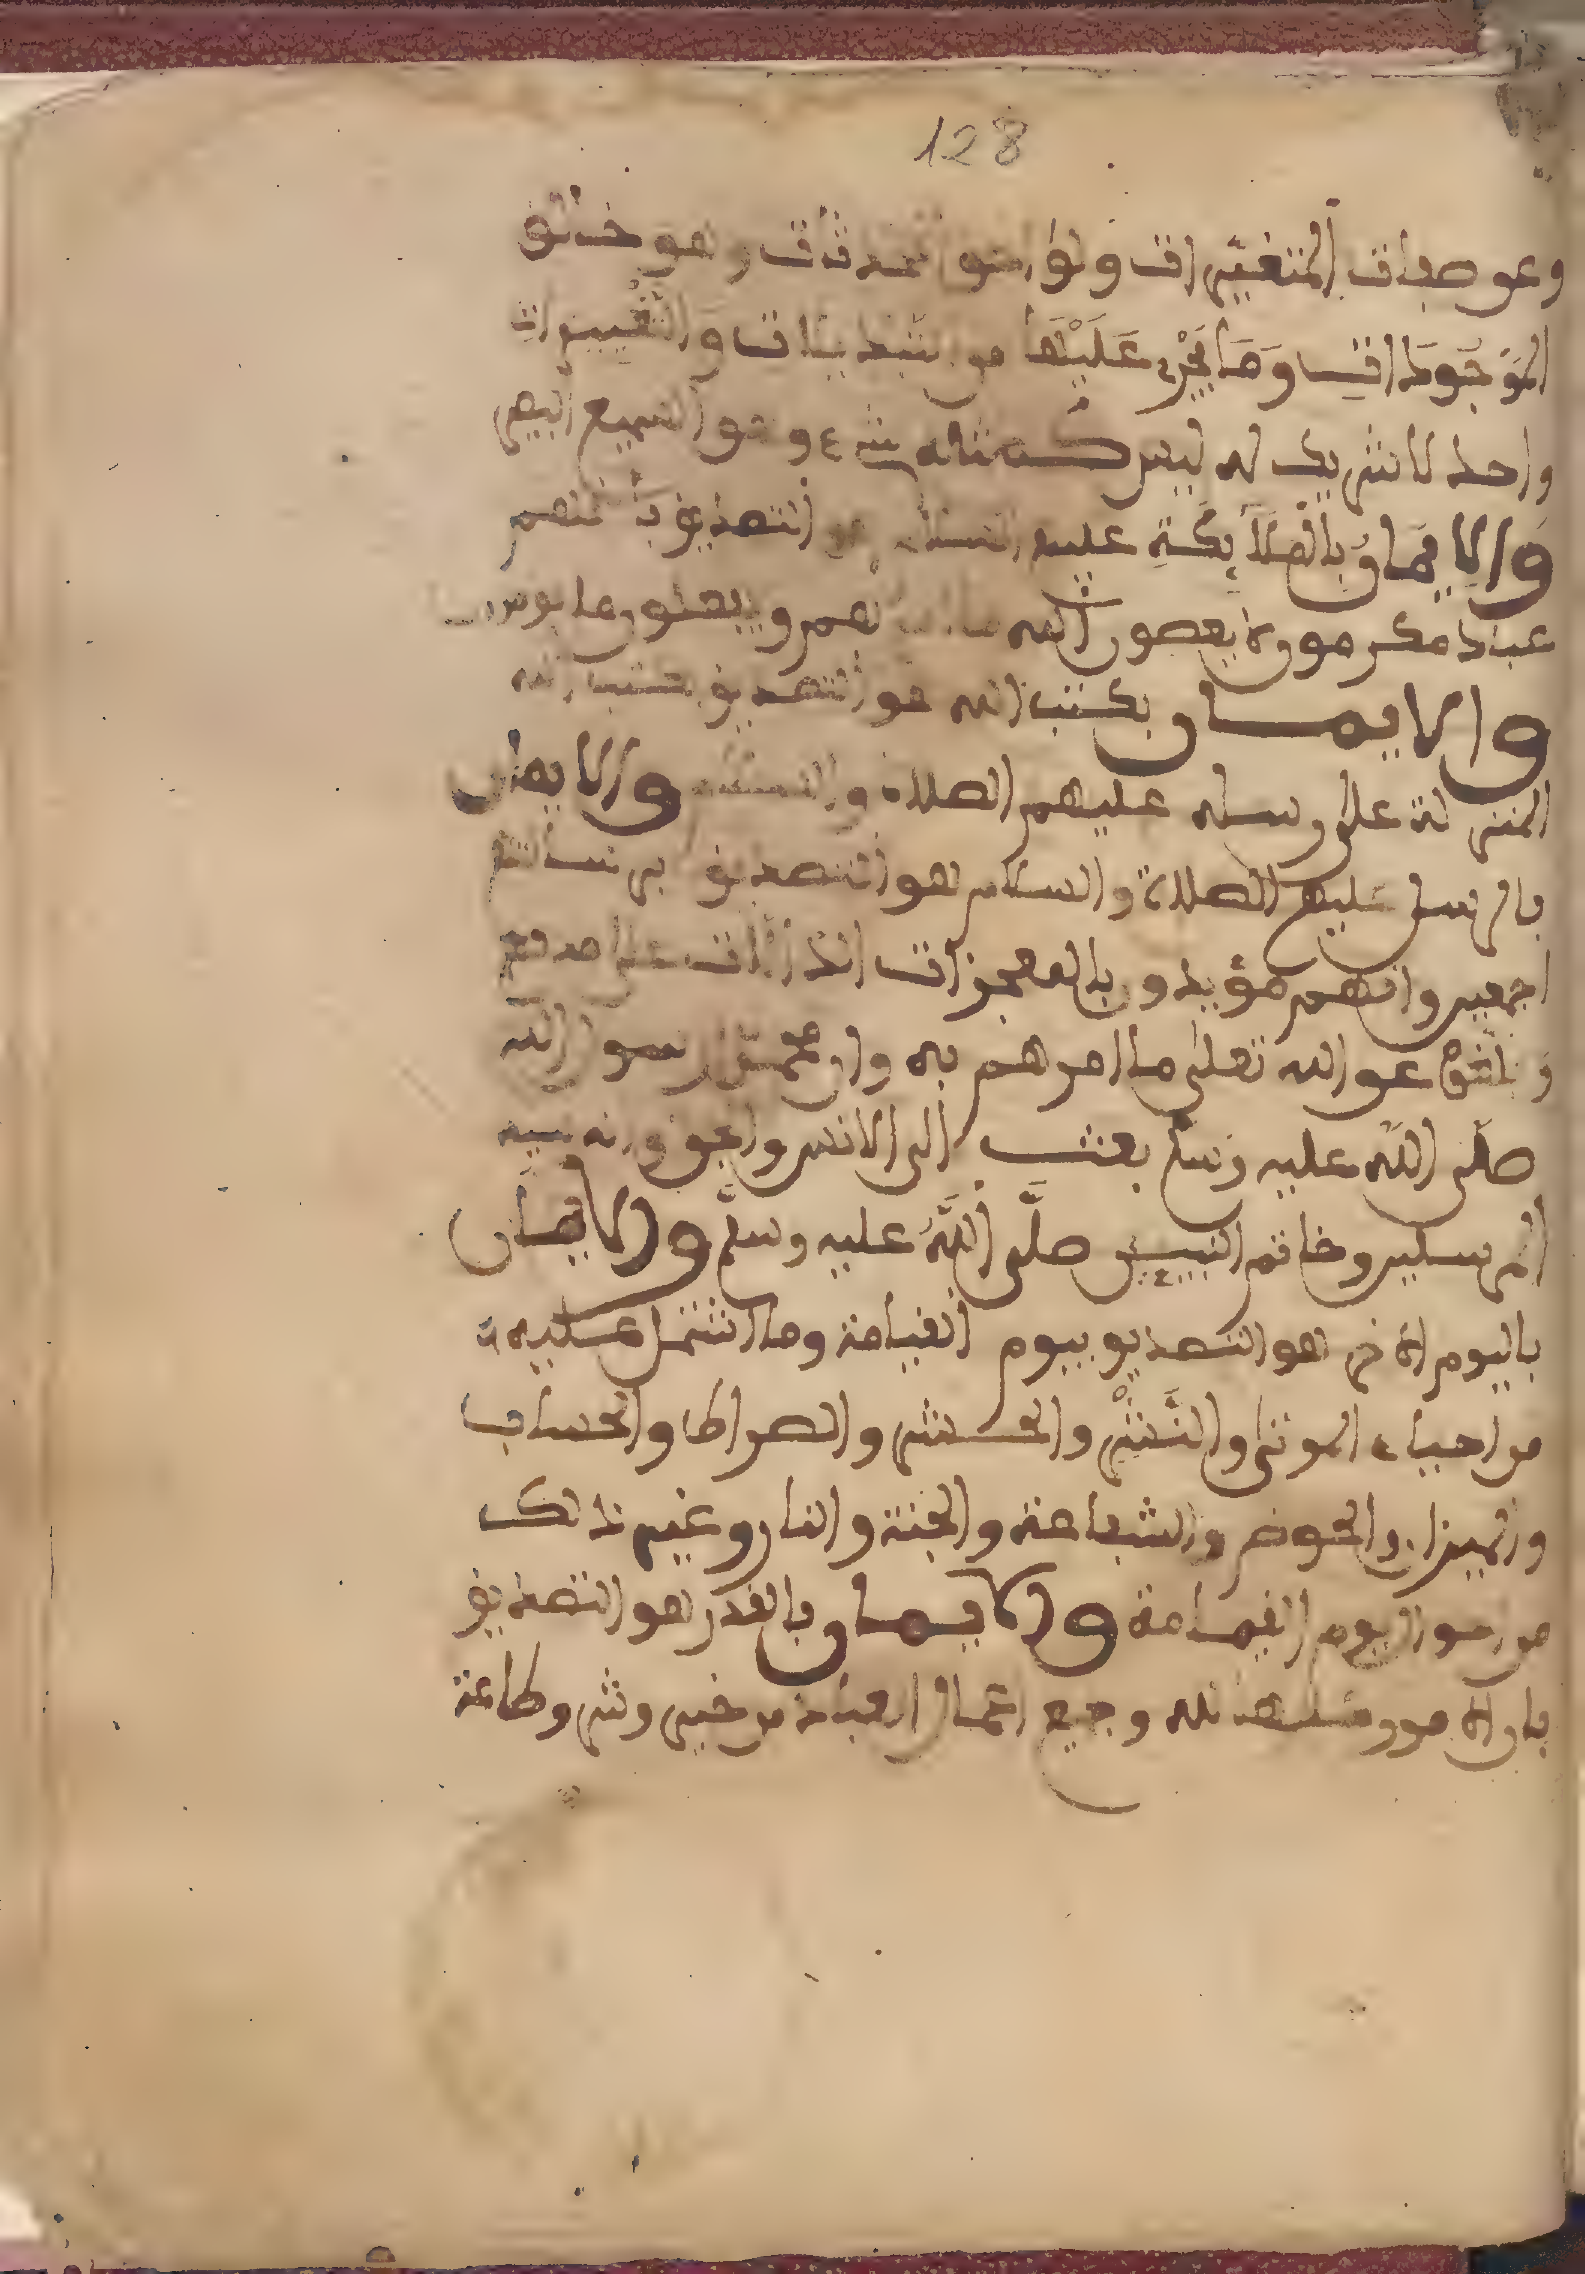 128
وعن صفات المتغيرات ولواحق المحدثات وهو خالق
الموجودات وَمَا يَجْرِي عَلَيْهَا من التبديلات والتغييرات
واحد لا شريك له ليس كمثله شيء وهو السميع البصير
وَالإيمَانُ بِالْمَلَائِكَةِ عليهم السلام هو التصديق بأنهم
عباد مكرمون لا يعصون الله ما امرهم ويفعلون ما يومرون
والايمان بكتب الله هو التصديق بكتب الله
المنزلة على رسله عليهم الصلاة والسلام والايمان
بالرسل عليهم الصلاة والسلام هو التصديق برسالتهم
اجمعين وانهم مؤيدون بالمعجزات الدالات على صدقهم
عن الله تعلى ما امرهم به وان محمدا رسول الله
صلى الله عليه وسلم بعث الى الانس والجن وانه سيد
المرسلين وخاتم النبيين صلَّى اللَّهُ عليه وسلَّم والايمان
باليوم الاخر هو التصديق بيوم القيامة وما اشتمل عليه
من احياء الموتى والنَّشْرِ والحشر والصراط والحساب
والميزان والحوض والشفاعة والجنة والنار وغير ذلك
من امور اليوم القيامة والايمان بالقدر هو التصديق
بان الامور كلها لله وجميع اعمال العباد من خير وشر وطاعة